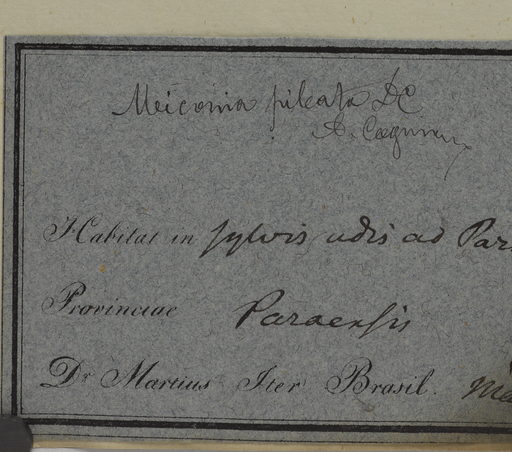 Meiconia pileata DC
A. Cogniaux
Habitat in sylvis udis ad Par
Provinciae Paraensis
Dr Martius Iter Brasil. Ma